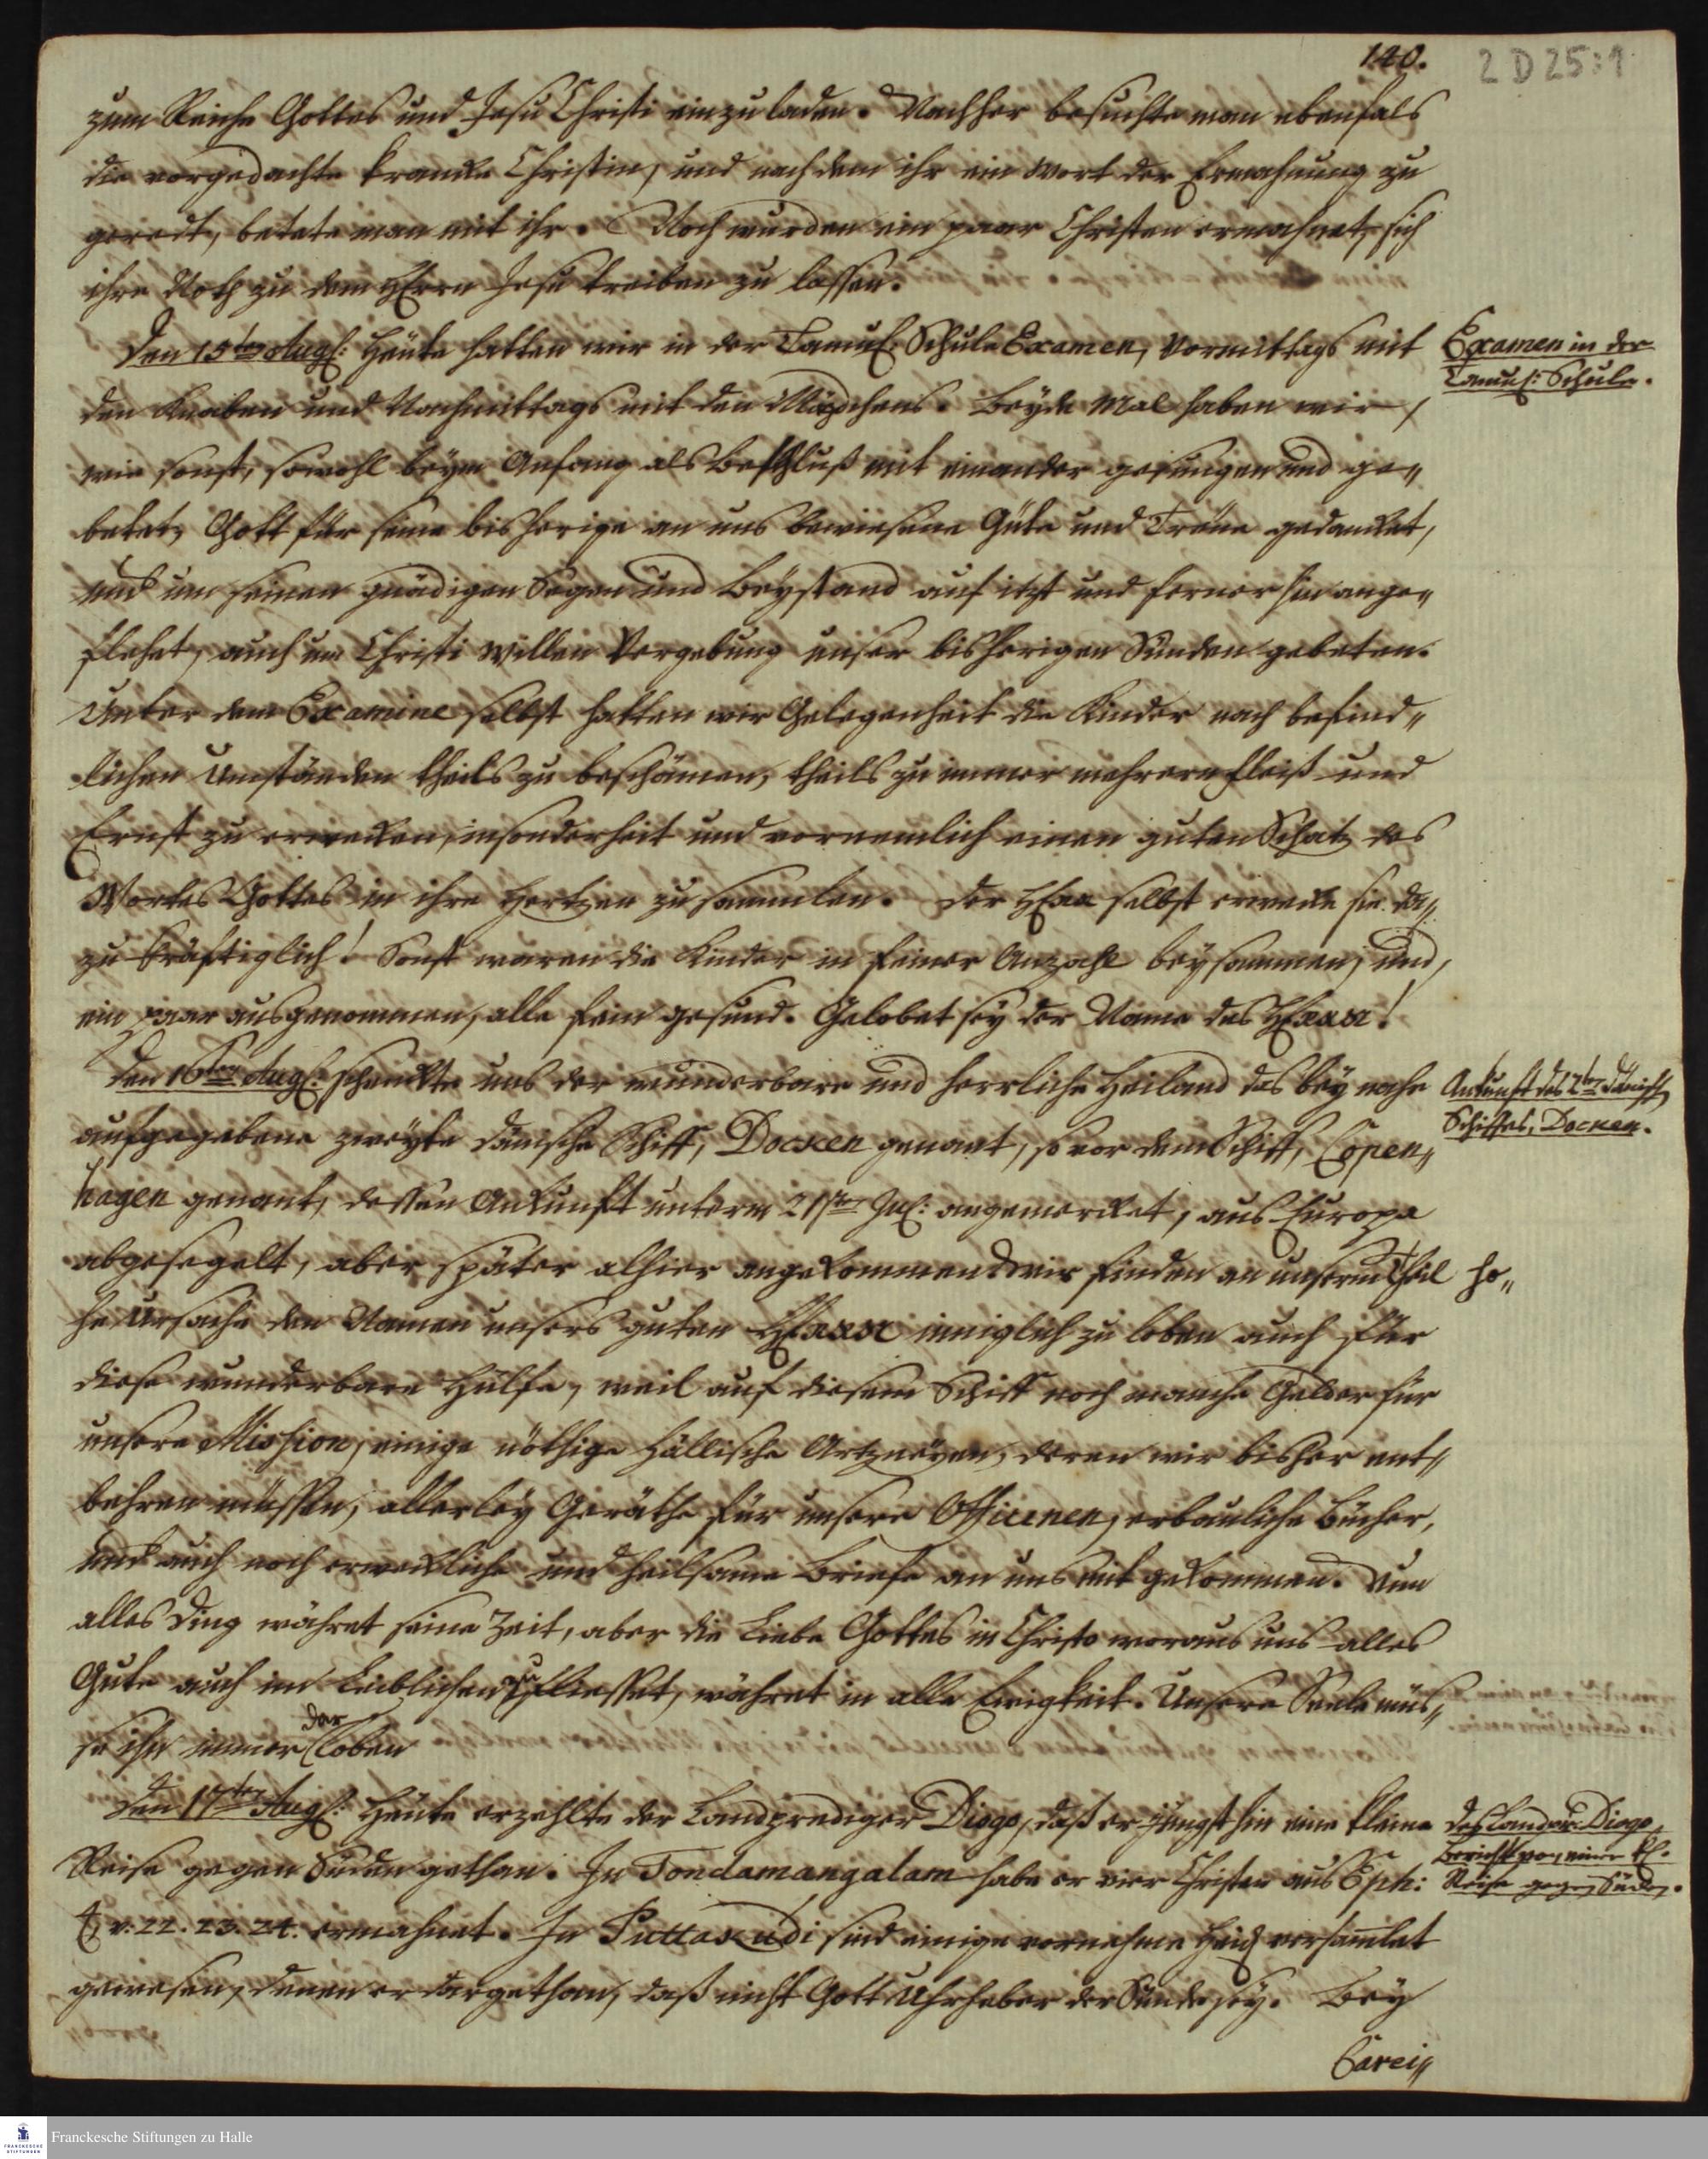 140.
2 D 25:1
zum Reiche Gottes und Jesu Christi einzuladen. Nachher besuchte man ebenfals
die vorgedachte krancke Christin, und nachdem ihr ein Wort der Ermahnung zu
geredt, betete man mit ihr. Noch wurden ein paar Christen ermahnet, sich
ihre Noth zu dem HErrn Jesu treiben zu lassen.
Den 15ten Aug: Heute hatten wir in der Tamul: Schule Examen, Vormittags mit
den Knaben und Nachmittags mit den Mägdchens. Beyde Mal haben wir,
wie sonst, sowohl beym Anfang als Beschluß mit einander gesungen und ge„
betet, Gott für seine bisherige an uns bewiesene Güte und Treue gedancket,
und um seinen gnädigen Segen und Beystand auf itzt und fernerhin ange„
flehet, auch um Christi willen Vergebung unser bisherigen Sünden gebeten.
Unter dem Examine selbst hatten wir Gelegenheit die Kinder nach befind„
lichen Umständen theils zu beschämen, theils zu immer mehrern Fleiß und
Ernst zu erwecken, insonderheit und vornemlich einen guten Schatz des
Wortes Gottes in ihre Hertzen zu sammlen. Der HErr selbst erwecke sie da„
zu kräftiglich! Sonst waren die Kinder in feiner Anzahl beysammen, und,
ein paar ausgenommen, alle fein gesund. Gelobet sey der Name des HErrn!
Examen in der
Tamul: Schule.
Den 16ten Aug: schenckte uns der wunderbare und herrliche Heiland das bey nahe
aufgegebene zweyte dänische Schiff, Docken genant, so vor dem Schiff, Copen„
hagen genant, dessen Ankunft unterm 21sten Jul: angemercket, aus Europa
abgesegelt, aber später alhier angekommen. Wir finden an unserm Theil ho„
he Ursache den Namen unsers guten HErrn inniglich zu loben auch für
diese wunderbare Hülfe, weil auf diesem Schiff noch manche Gelder für
unsere Mission, einige nöthige Hällische Artzneyen, deren wir bisher ent„
behren müssen, allerley Geräthe für unsere Officinen, erbauliche Bücher,
und auch noch erweckliche und heilsame Briefe an uns mit gekommen. Nun
alles Ding währet seine Zeit, aber die Liebe Gottes in Christo woraus uns alles
Gute auch im Leiblichen zufliesset, währet in alle Ewigkeit. Unsere Seele müs„
se ihn immerdar loben
Ankunft des 2ten dänisch
Schiffes, Docken.
Den 17ten Aug: Heute erzehlte der Landprediger Diogo, daß er jüngsthin eine kleine
Reise gegen Süden gethan. In Tondamangalam habe er vier Christen aus Eph:
4, v: 22. 23. 24. ermahnet. In Puttakudi sind einige vornehme Heid versamlet
gewesen, denen er dargethan, daß nicht Gott Uhrheber der Sünde sey. Bey
Des Landpr: Diogo,
Bericht von einer kl.
Reise gegen Süden.
Carei„
Franckesche Stiftungen zu Halle